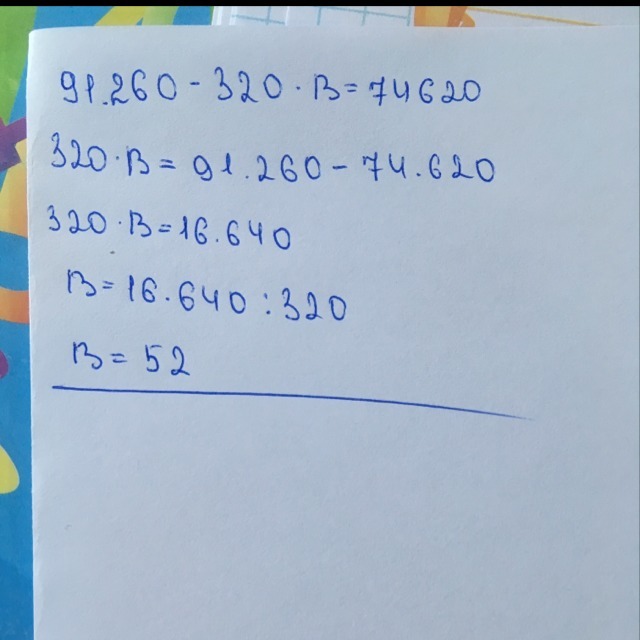 91.260 - 320 · B = 74620
320 · B = 91.260 - 74.620
320 · B = 16.640
B = 16.640 : 320
B = 52